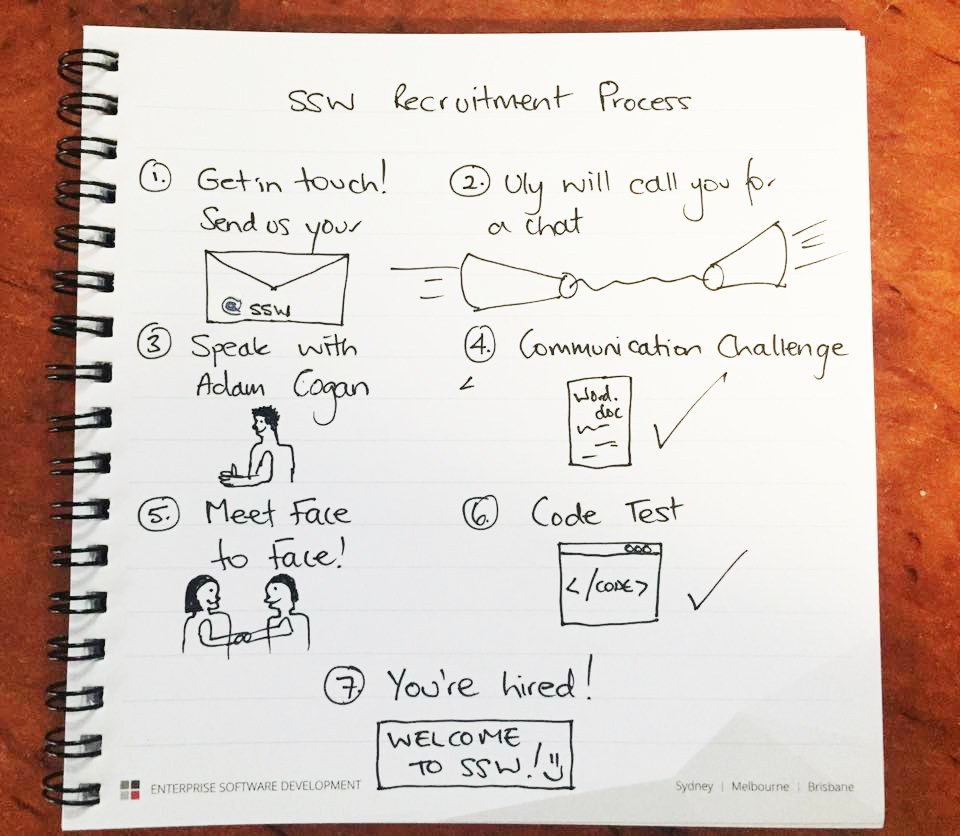 SSW Recruitment Process
1. Get in touch!
Send us your
@ SSW
2. Uly will call you for
a chat
3 Speak with
Adam Cogan
4. Communication Challenge
Word.
doc
5. Meet Face
to Face!
6. Code Test
</CODE>
7. You're hired!
WELCOME
TO SSW! :)
ENTERPRISE SOFTWARE DEVELOPMENT
Sydney | Melbourne | Brisbane